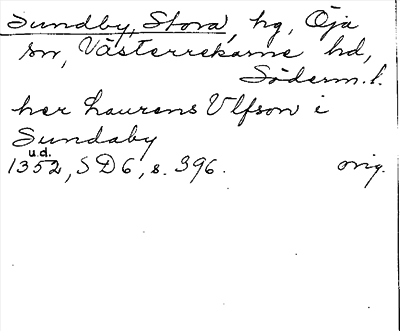 Sundby, Stora, hg, Öja
sn, Västerrekarne hd,
Söderm. l.
her Laurens Vlfson i
Sundaby
u.d.
1352, SD6, s. 396.
orig.